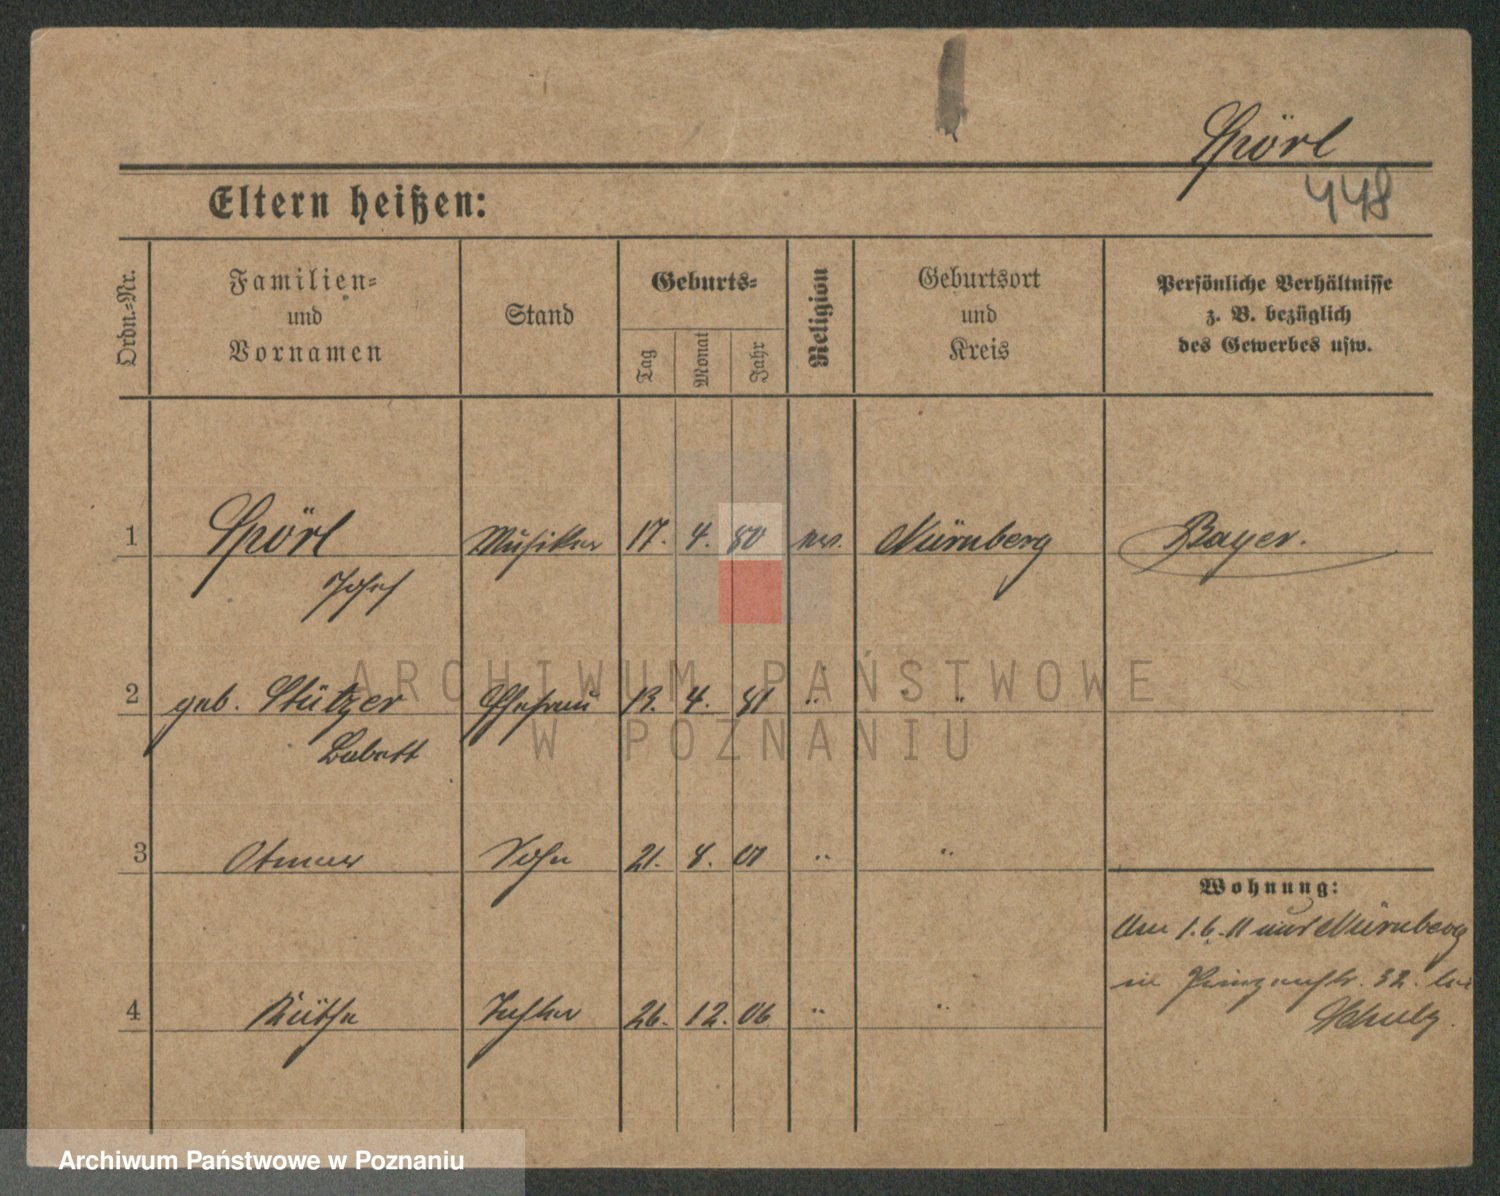 Spörl
448
Eltern heißen:
Ordn.-Nr.
Familien-
und
Vornamen
Stand
Geburts-
Tag
Monat
Jahr
Religion
Geburtsort
und
Kreis
Persönliche Verhältnisse
z. B. bezüglich
des Gewerbes usw.
1 Spörl Musiker 17. 4. 80 ev. Nürnberg Bayer.
Josef
2 geb. Stützer Ehefrau 13. 4. 81 " " "
Babett
3 Otmar Sohn 21. 8. 01 " "
Wohnung:
Am 1.6.11 aus Nürnberg
in Prinzenstr. 32. bei
Schulz.
4 Käthe Tochter 26. 12. 06 " "
ARCHIWUM PAŃSTWOWE
W POZNANIU
Archiwum Państwowe w Poznaniu